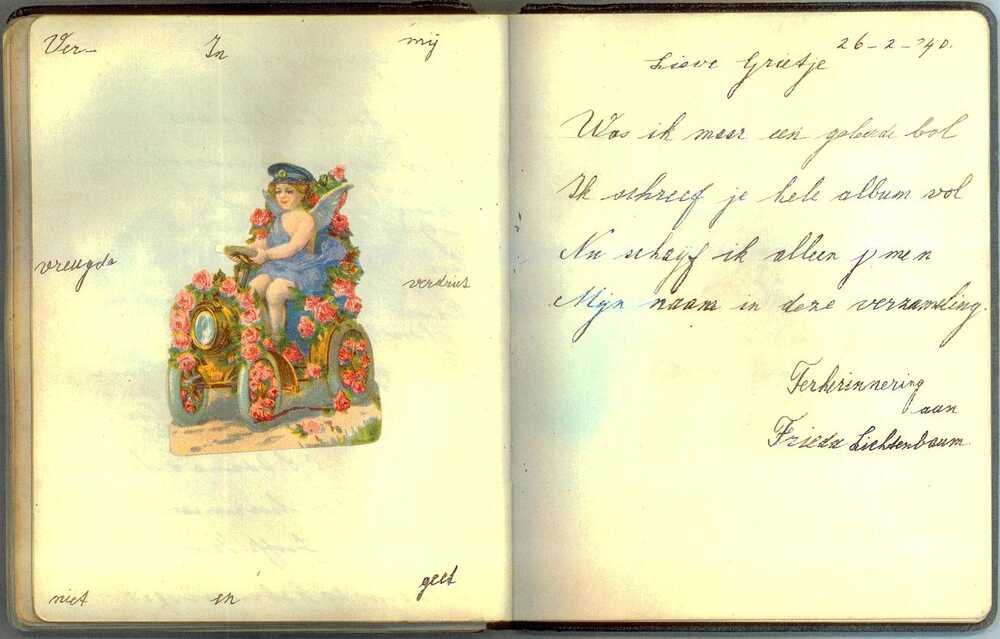 Ver- In mij
vreugde verdriet
niet en geet
26-2-'40.
Lieve Grietje
Was ik maar een geleerde bol
Ik schreef je hele album vol
Nu schrijf ik alleen
Mijn naam in deze verzameling.
Terherinnering
aan
Frieda Lichtenbaum